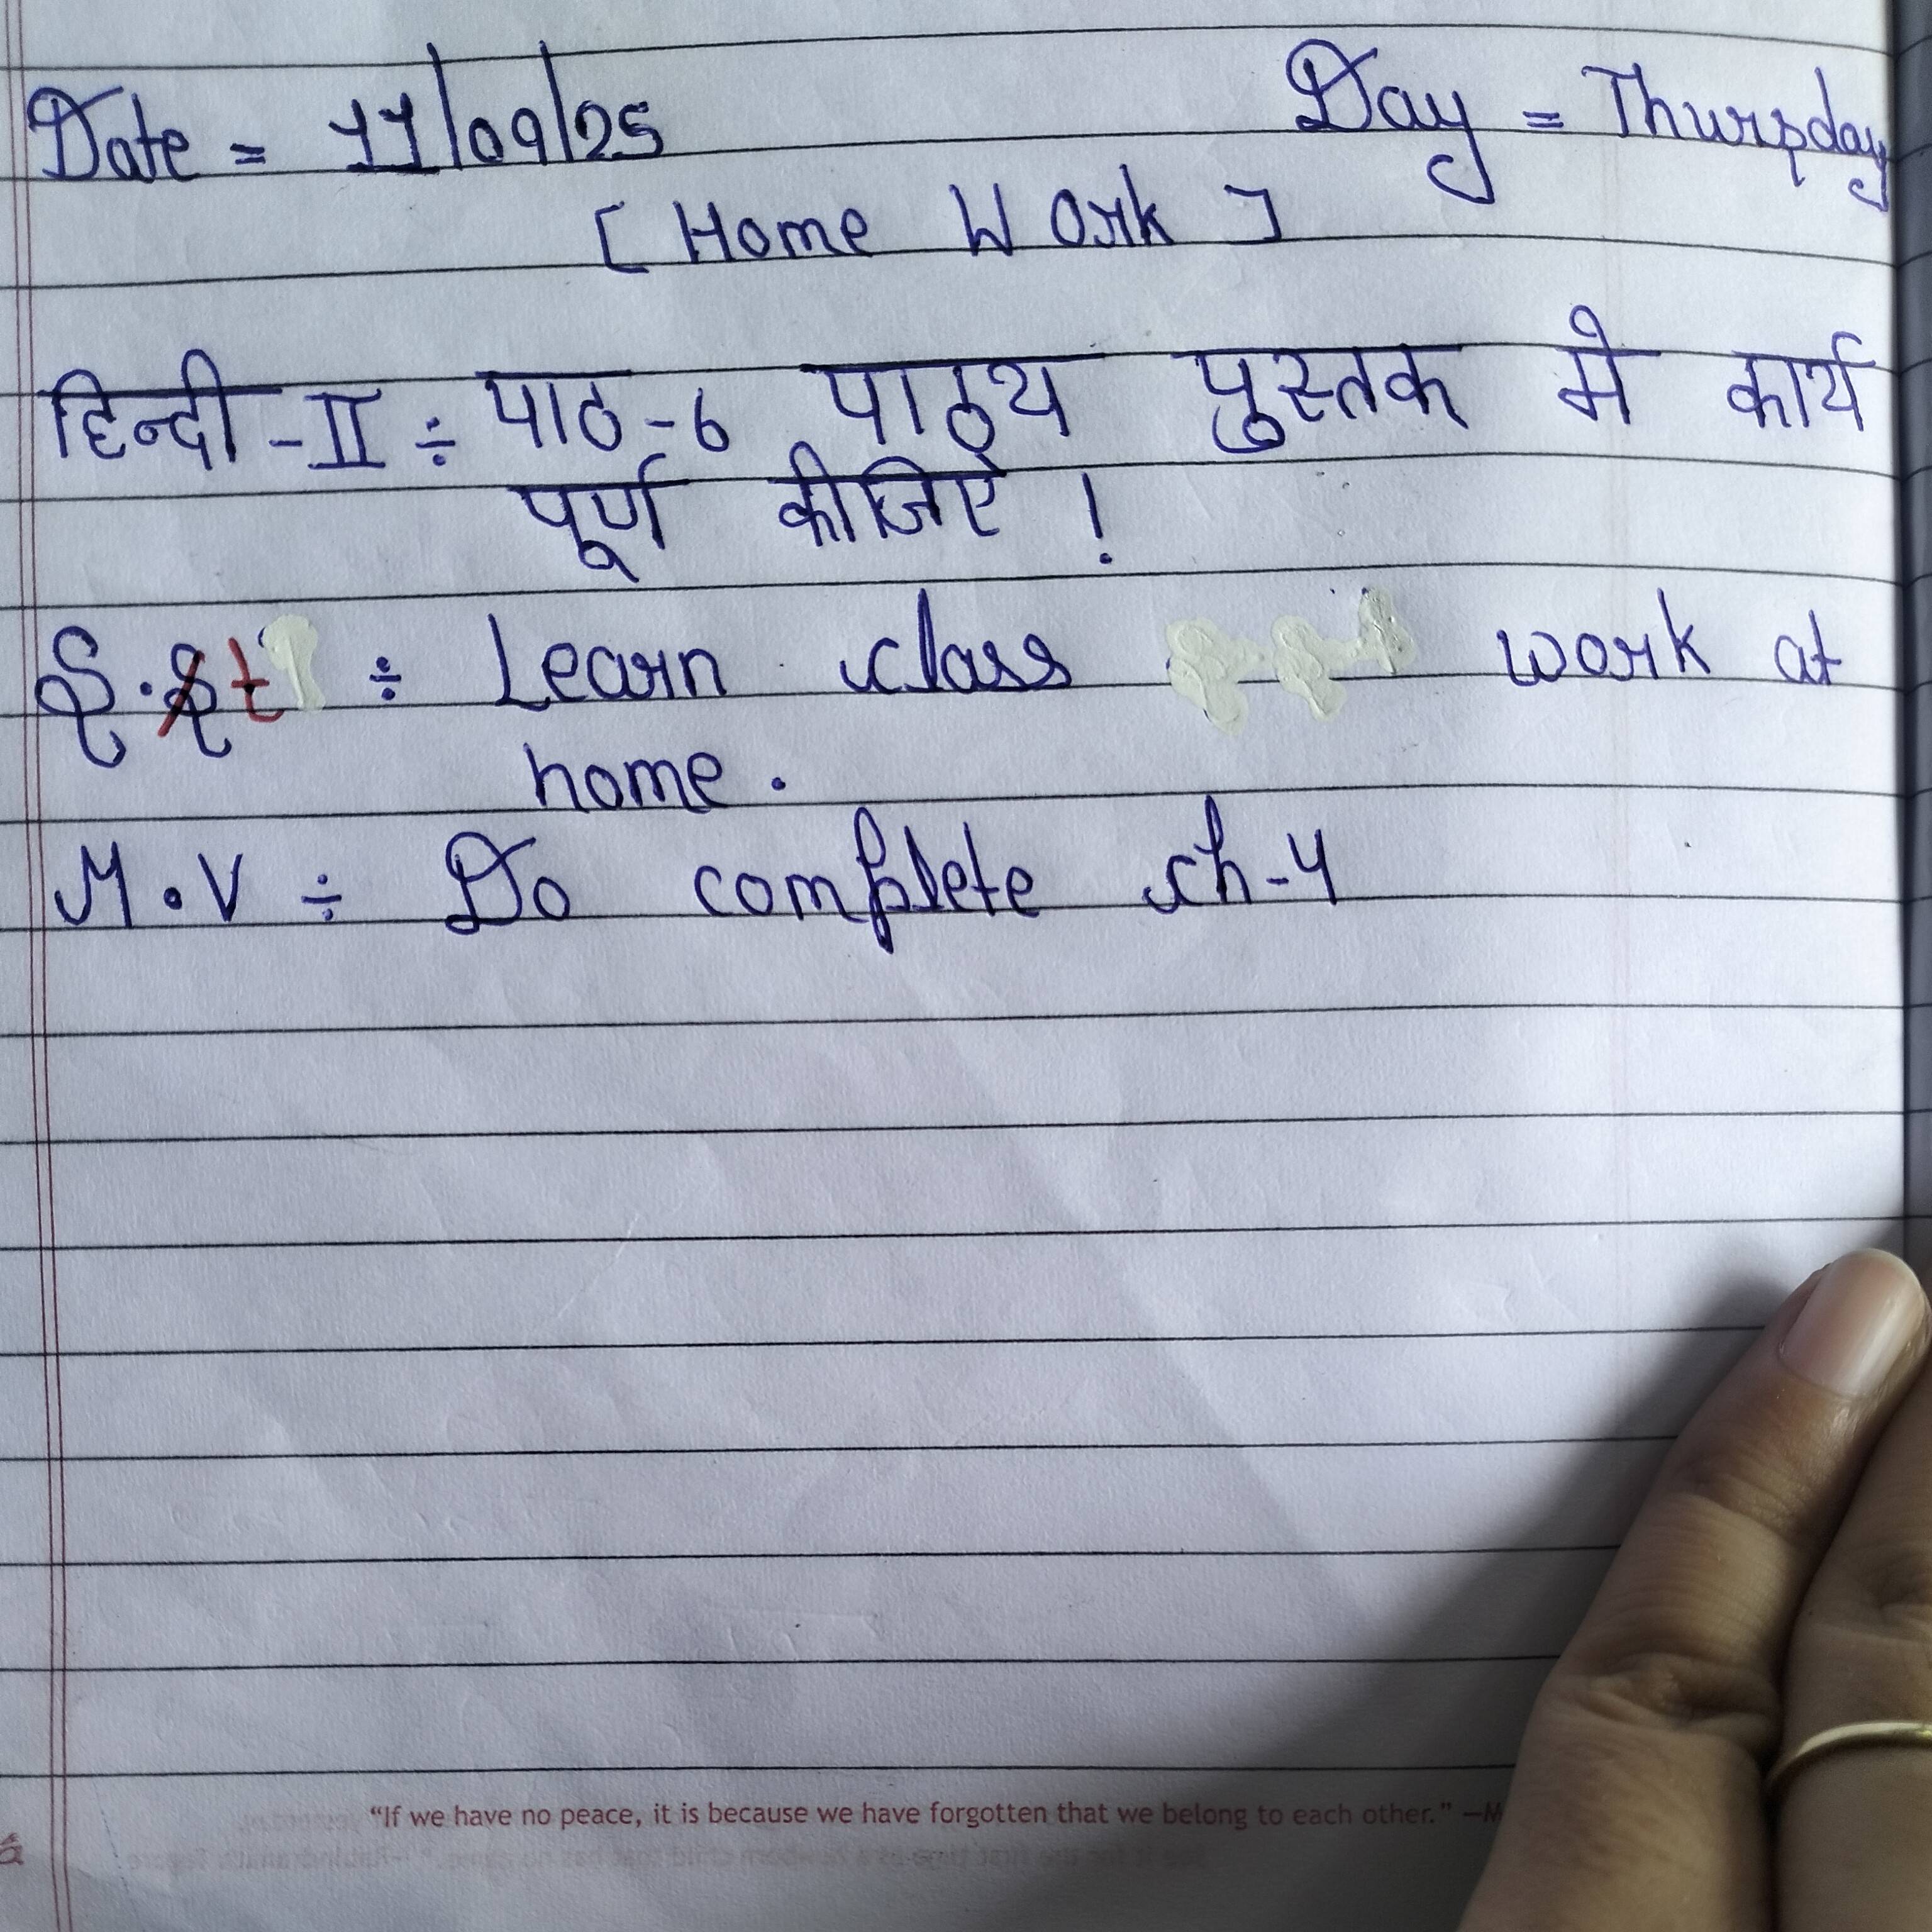 Date = 11/09/25 Day = Thursday
[ Home Work ]
हिन्दी -II ÷ पाठ-6 पाठ्य पुस्तक मे कार्य
पूर्ण कीजिए !
S.St ÷ Learn class work at
home.
M.V ÷ Do complete ch-4
"If we have no peace, it is because we have forgotten that we belong to each other." —M